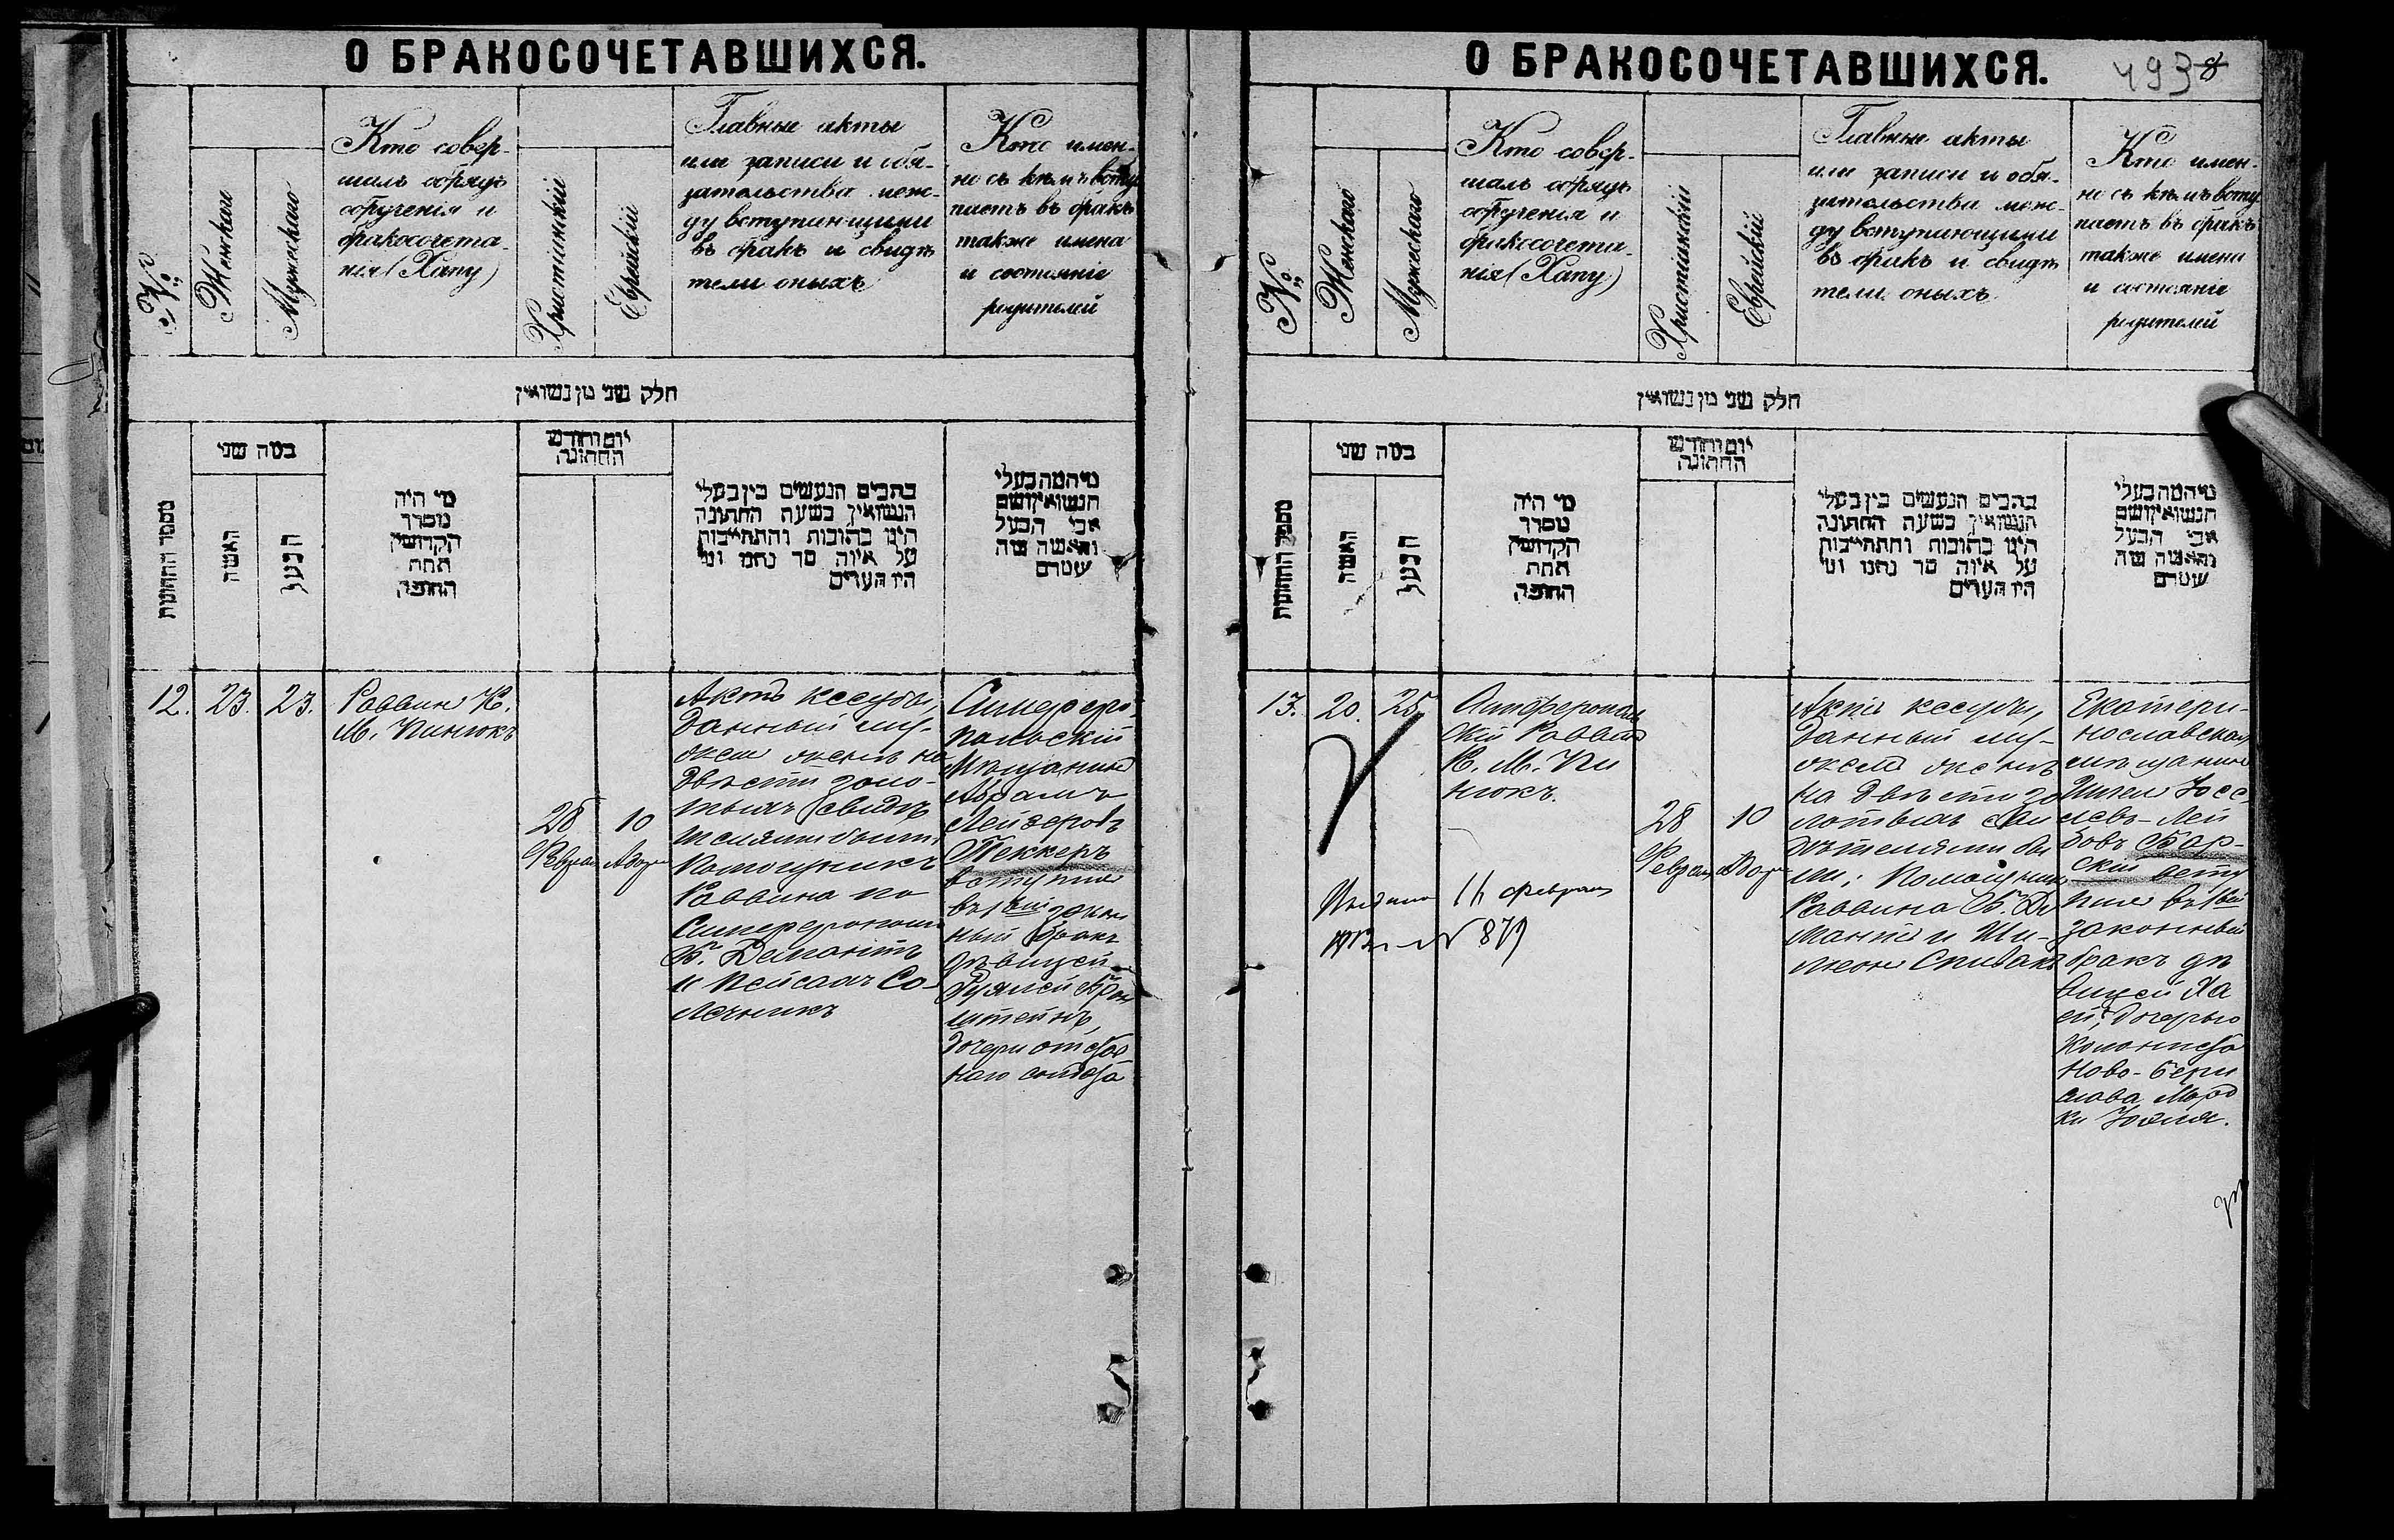 О БРАКОСОЧЕТАВШИХСЯ.
№
Женскаго
Мужескаго
Кто совер-
шалъ обрядъ
обрученія и
бракосочета-
нія (Хапу)
Христіанскій
Еврейскій
Главные акты
или записи и обя-
зательства меж-
ду вступающими
въ бракъ и свидѣ
тели оныхъ
Кто имен-
но съ кѣмъ всту
паетъ въ бракъ
также имена
и состояніе
родителей
חלק שני מן נשואין
מספר החתונות
כמה שני
האשה
הבעל
מי היה
מסדר
הקדושין
תחת
החופה
יום וחודש
החתונה
כתבים הנעשים בין בעלי
הנשואין בשעת החתונה
הינו כתובות והתחייבות
על איזה סך נתנו ומי
היו העדים
מי המה בעלי
הנשואין ושם
אבי הבעל
והאשה מה
שמם
12.
23.
23.
Раввин К.
М. Пинюкъ
28
Феврал
10
Адора
Актъ кесубы,
данный му-
жем женѣ на
двѣсти золо-
тыхъ свидѣ
телями были
Помощникъ
Раввина по
Симферополю
Б. Демантъ
и Пейсахъ Со-
лечникъ
Симферо-
польскій
Мѣщанинъ
Абрамъ
Лейзеровъ
Теккеръ
вступилъ
въ 1вый закон
ный бракъ
дѣвицей
Рухлей Брон
штейнъ,
дочери отстав
наго солдата
О БРАКОСОЧЕТАВШИХСЯ.
493 8
№
Женскаго
Мужескаго
Кто совер-
шалъ обрядъ
обрученія и
бракосочета-
нія (Хапу)
Христіанскій
Еврейскій
Главные акты
или записи и обя-
зательства меж-
ду вступающими
въ бракъ и свидѣ
тели оныхъ
Кто имен-
но съ кѣмъ всту
паетъ въ бракъ
также имена
и состояніе
родителей
חלק שני מן נשואין
מספר החתונות
כמה שני
האשה
הבעל
מי היה
מסדר
הקדושין
תחת
החופה
יום וחודש
החתונה
כתבים הנעשים בין בעלי
הנשואין בשעת החתונה
הינו כתובות והתחייבות
על איזה סך נתנו ומי
היו העדים
מי המה בעלי
הנשואין ושם
אבי הבעל
והאשה מה
שמם
13.
20.
25
Симферополь
скій Раввин
К. М. Пи
нюкъ.
11 февраля
№ 879
28
Феврал
10
Адора
Актъ кесубы,
данный му-
жемъ женѣ
на двѣсти зо
лотыхъ сви
дѣтелями бы
ли: Помощник
Раввина Б. Де
мантъ и Ши-
меонъ Спивакъ
Екатери-
нославскій
мѣщанинъ
Ицек Іосе
левъ-Лей
бовъ Бар-
скій всту
пил въ 1вый
законный
бракъ дѣ
вицей Ха
ей, дочерью
колониста
Ново-Бери
слава Морд
ки Іоэля.